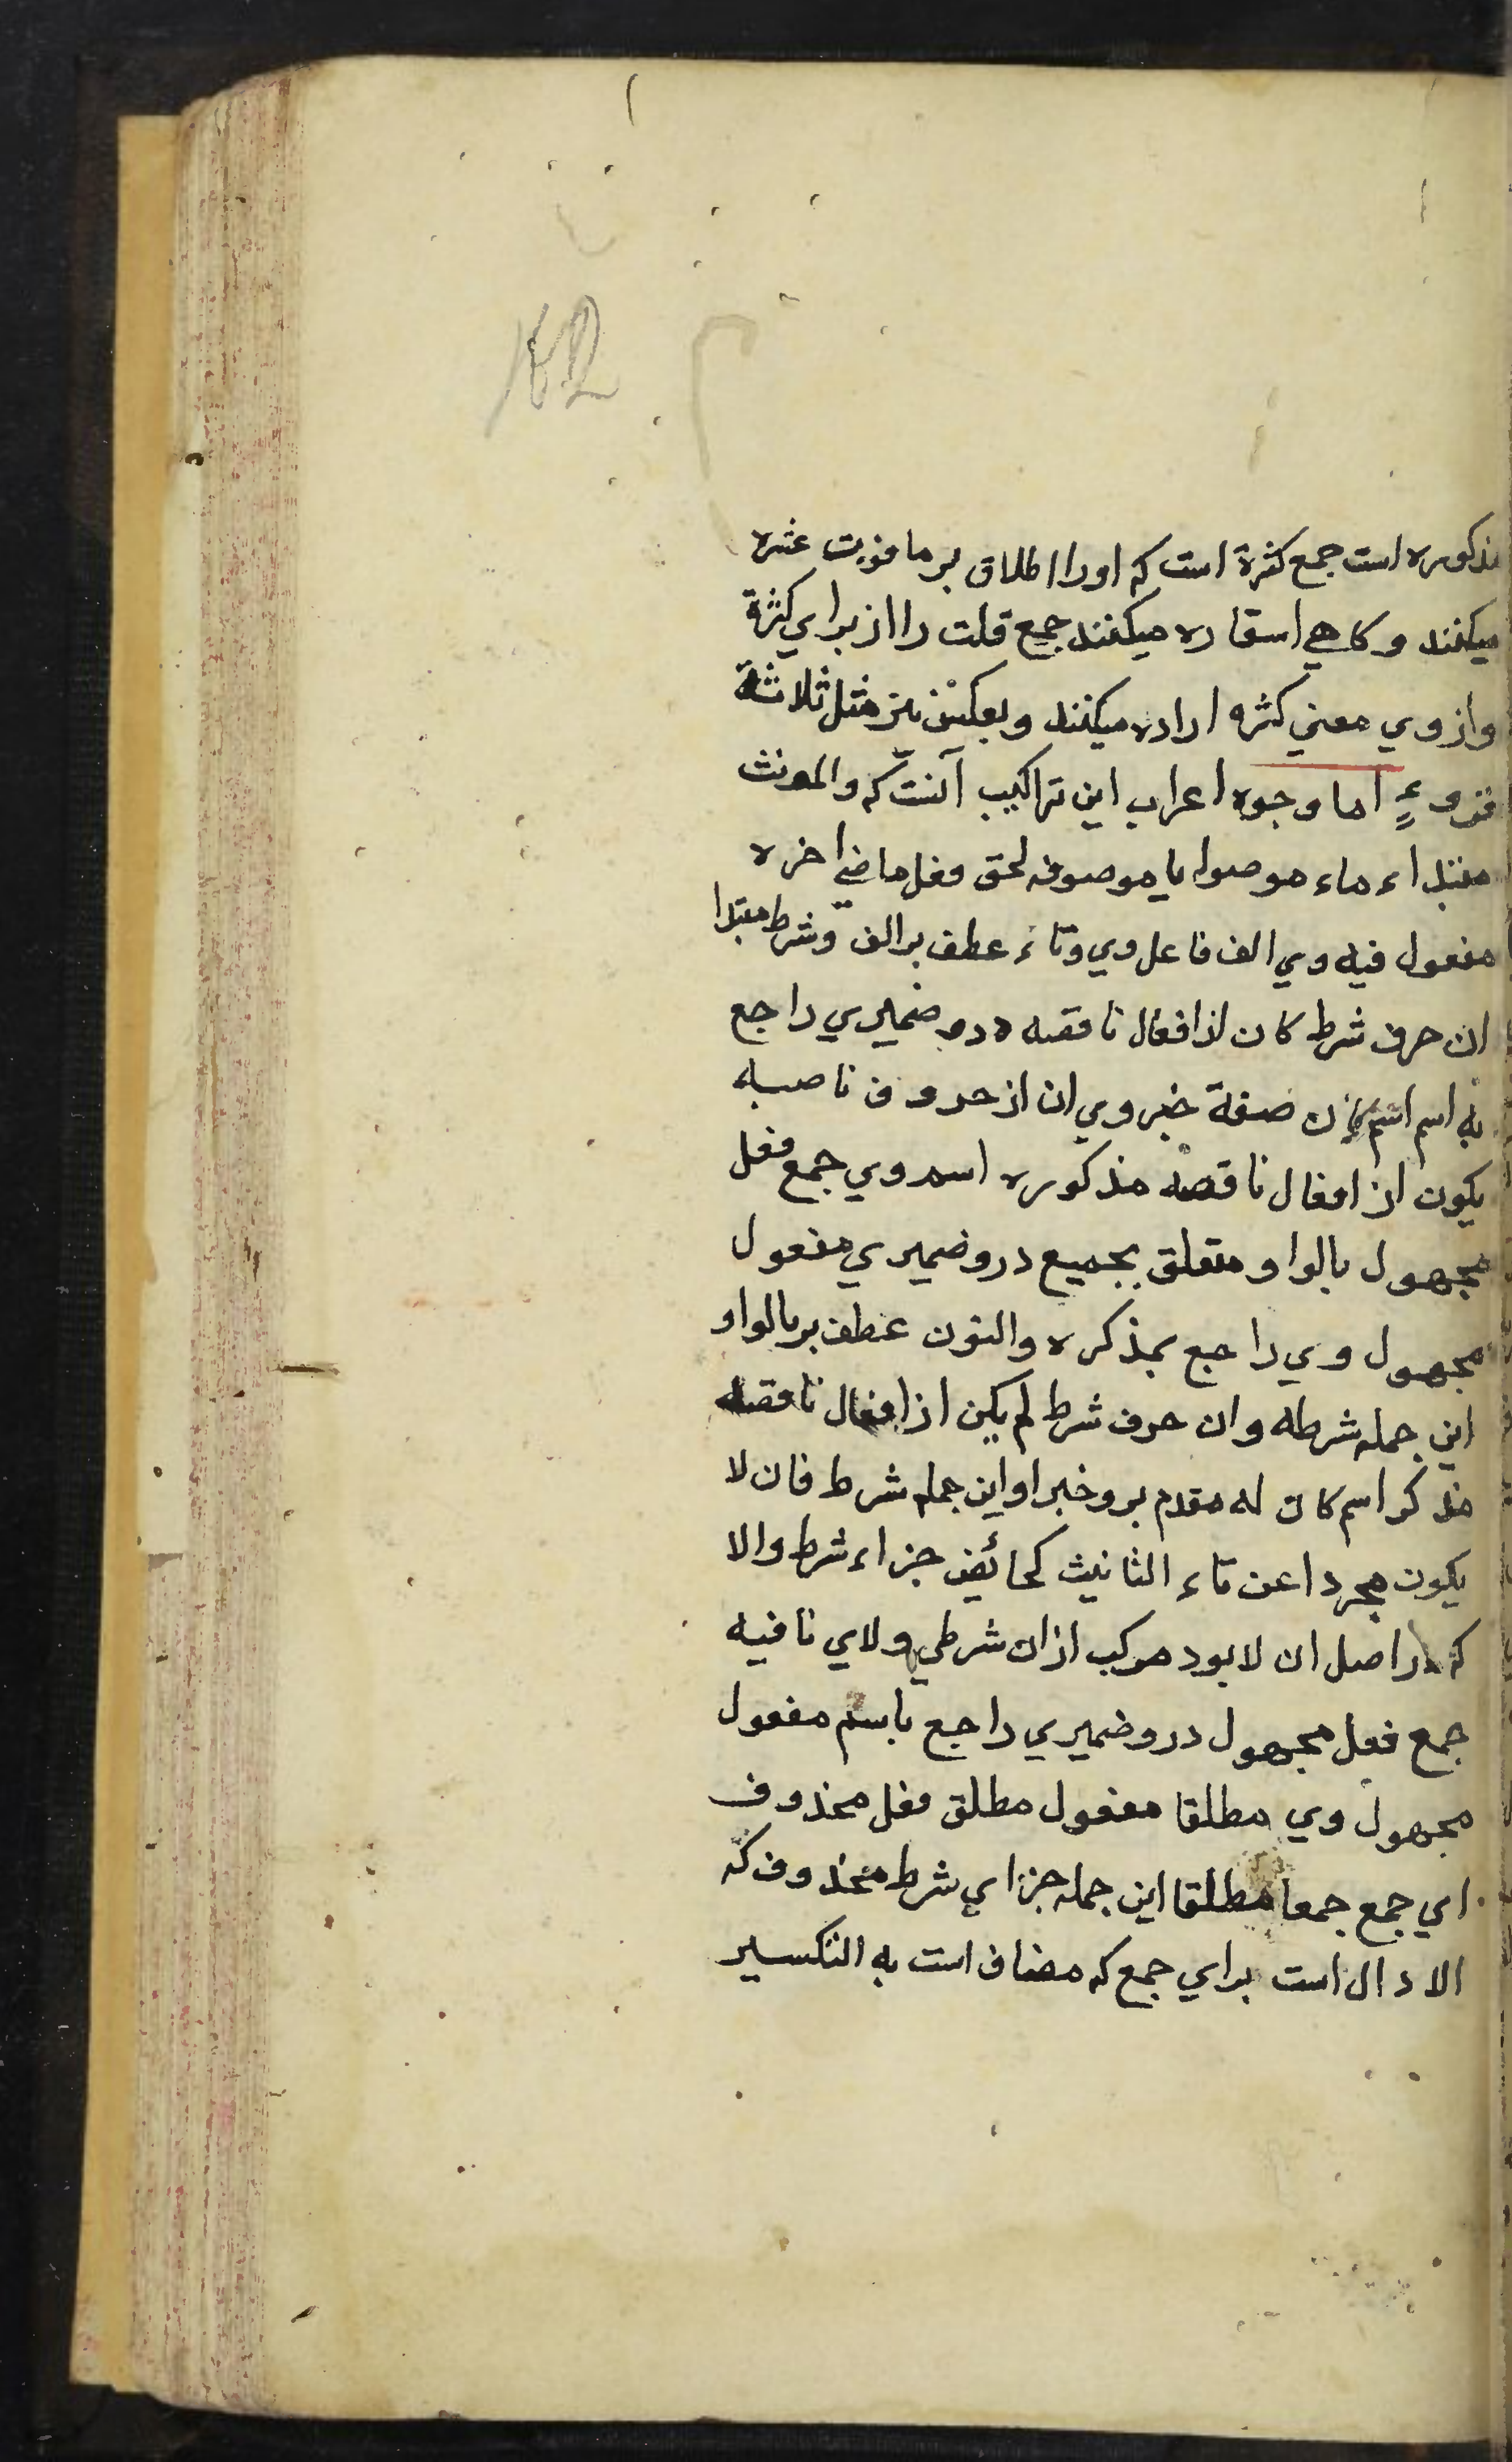 مذکوره است جمع کثرة است که اورا اطلاق بر مافوق عشره
میکنند و کاهي استعاره میکنند جمع قلت را از براي کثرة
واز وي معني کثره اراده میکنند وبعکس نیز مثل ثلاثة
قروءٍ اما وجوه اعراب این تراکیب آنست که والمونث
مبتداء ماء موصوله یا موصوفه لحق فعل ماضي اخره
مفعول فیه وي الف فاعل وي وتاء عطف بر الف وشرط مبتدا
ان حرف شرط کان از افعال ناقصه درو ضمیري راجع
به اسم اسم کان صفة خبر وي ان از حروف ناصبه
یکون از افعال ناقصه مذکوره اسم وي جمع فعل
مجهول بالواو متعلق بجمیع درو ضمیري مفعول
مجهول وي راجع بمذکره والنون عطف بر بالواو
این جمله شرطه وان حرف شرط لم یکن از افعال ناقصه
مذکر اسم کان له مقدم برو خبر او این جمله شرط فان لا
یکون مجردا عن تاء التانیث کحائض جزاء شرط والا
که در اصل ان لا بود مرکب از ان شرطي ولاي نافیه
جمع فعل مجهول درو ضمیري راجع باسم مفعول
مجهول وي مطلقا مفعول مطلق فعل محذوف
اي جمع جمعا مطلقا این جمله جزاي شرط محذوف که
الا دال است براي جمع که مضاف است به التکسیر